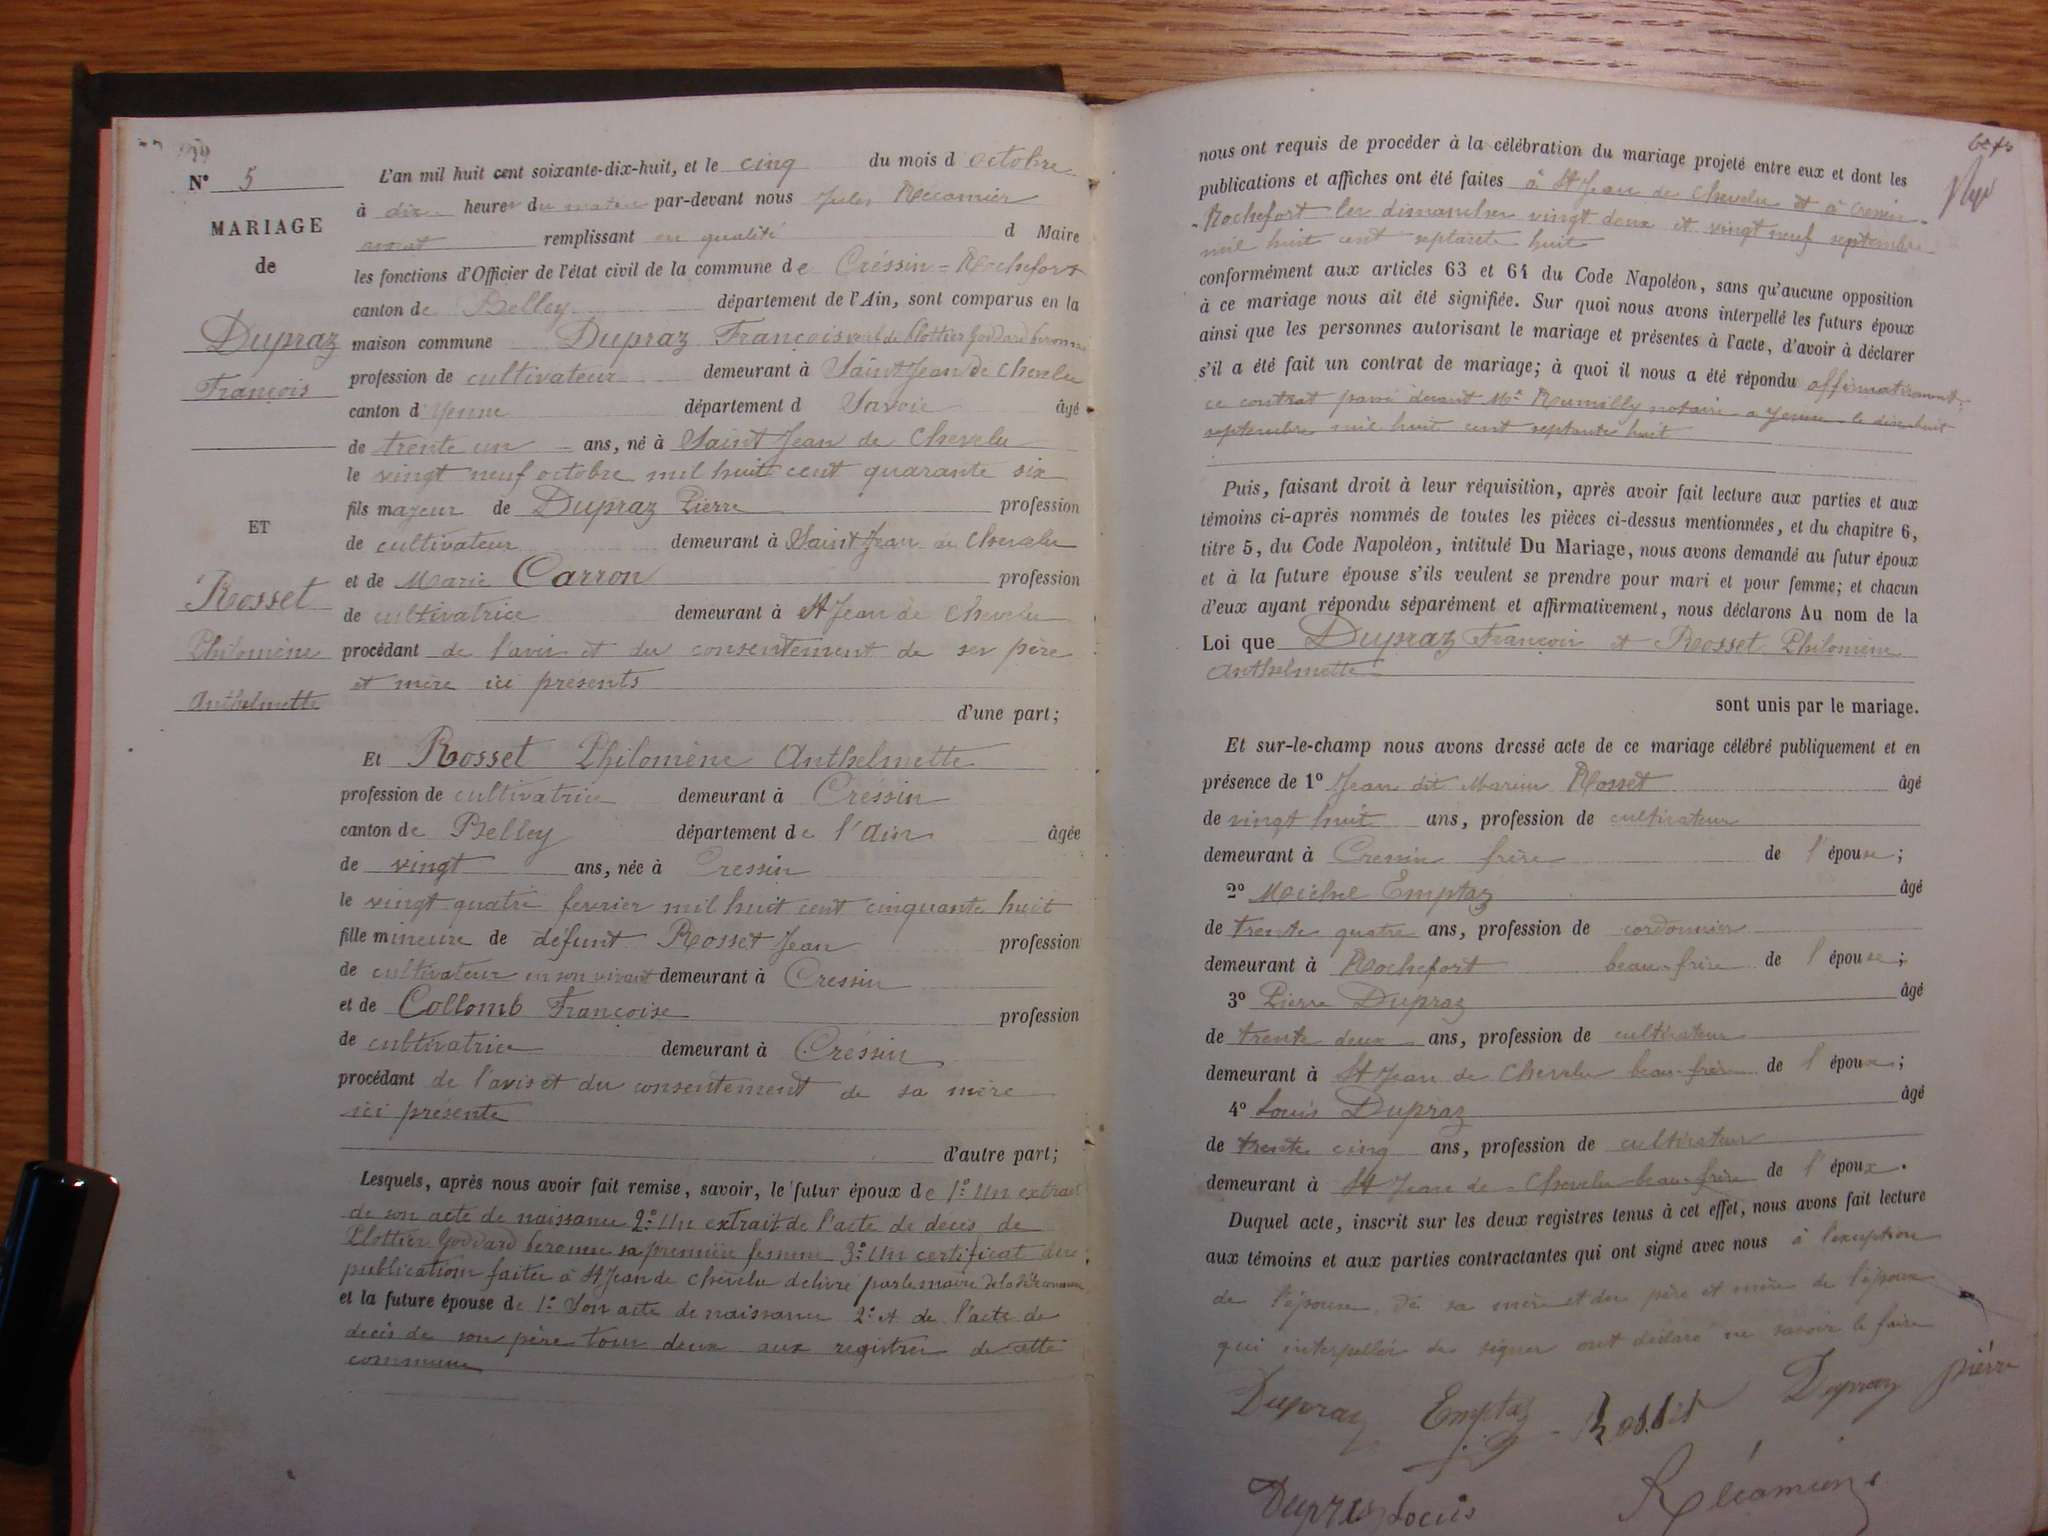 N° 5
MARIAGE
de
Dupraz
François
ET
Rosset
Philomène
Anthelmette
L'an mil huit cent soixante-dix-huit, et le cinq du mois d octobre
à dix heures du matin par-devant nous Jules Récamier
avocat remplissant en qualité d Maire
les fonctions d'Officier de l'état civil de la commune de Créssin-Rochefort
canton de Belley département de l'Ain, sont comparus en la
maison commune Dupraz François veuf de Plottier Goddard
profession de cultivateur demeurant à Saint Jean de Chevelu
canton d'Yenne département d Savoie âgé
de trente un ans, né à Saint Jean de Chevelu
le vingt neuf octobre mil huit cent quarante six
fils majeur de Dupraz Pierre profession
de cultivateur demeurant à Saint Jean de Chevelu
et de Marie Carron profession
de cultivatrice demeurant à St Jean de Chevelu
procédant de l'avis et du consentement de ses père
et mère ici présents
d'une part;
Et Rosset Philomène Anthelmette
profession de cultivatrice demeurant à Créssin
canton de Belley département de l'Ain âgée
de vingt ans, née à Cressin
le vingt quatre fevrier mil huit cent cinquante huit
fille mineure de défunt Rosset Jean profession
de cultivateur en son vivant demeurant à Cressin
et de Collomb Françoise profession
de cultivatrice demeurant à Créssin
procédant de l'avis et du consentement de sa mère
ici présente
d'autre part;
Lesquels, après nous avoir fait remise, savoir, le futur époux de 1° Un extrait
de son acte de naissance 2° Un extrait de l'acte de deces de
Plottier Goddard sa première femme 3° Un certificat des
publications faites à St Jean de Chevelu delivré par le maire de la
et la future épouse de 1° Son acte de naissance 2° et de l'acte de
decès de son père tous deux aux registres de cette
commune
nous ont requis de procéder à la célébration du mariage projeté entre eux et dont les
publications et affiches ont été faites à St Jean de Chevelu et à Cressin-
-Rochefort les dimanches vingt deux et vingt neuf septembre
mil huit cent septante huit
conformément aux articles 63 et 64 du Code Napoléon, sans qu'aucune opposition
à ce mariage nous ait été signifiée. Sur quoi nous avons interpellé les futurs époux
ainsi que les personnes autorisant le mariage et présentes à l'acte, d'avoir à déclarer
s'il a été fait un contrat de mariage; à quoi il nous a été répondu affirmativement;
ce contrat passé devant Me Rumilly notaire a Yenne le dix huit
septembre mil huit cent septante huit
Puis, faisant droit à leur réquisition, après avoir fait lecture aux parties et aux
témoins ci-après nommés de toutes les pièces ci-dessus mentionnées, et du chapitre 6,
titre 5, du Code Napoléon, intitulé Du Mariage, nous avons demandé au futur époux
et à la future épouse s'ils veulent se prendre pour mari et pour femme; et chacun
d'eux ayant répondu séparément et affirmativement, nous déclarons Au nom de la
Loi que Dupraz François et Rosset Philomène
Anthelmette
sont unis par le mariage.
Et sur-le-champ nous avons dressé acte de ce mariage célébré publiquement et en
présence de 1° Jean dit Marius Rosset âgé
de vingt huit ans, profession de cultivateur
demeurant à Cressin frère de l'épouse;
2° Michel Emptaz âgé
de trente quatre ans, profession de cordonnier
demeurant à Rochefort beau-frère de l'épouse;
3° Pierre Dupraz âgé
de trente deux ans, profession de cultivateur
demeurant à St Jean de Chevelu beau-frère de l'époux;
4° Louis Dupraz âgé
de trente cinq ans, profession de cultivateur
demeurant à St Jean de Chevelu beau-frère de l'époux.
Duquel acte, inscrit sur les deux registres tenus à cet effet, nous avons fait lecture
aux témoins et aux parties contractantes qui ont signé avec nous à l'exception
de l'épouse, de sa mère et des père et mère de l'époux
qui interpellés de signer ont déclaré ne savoir le faire
Dupraz Emptaz Rosset Dupraz pierre
Dupraz Louis Récamier